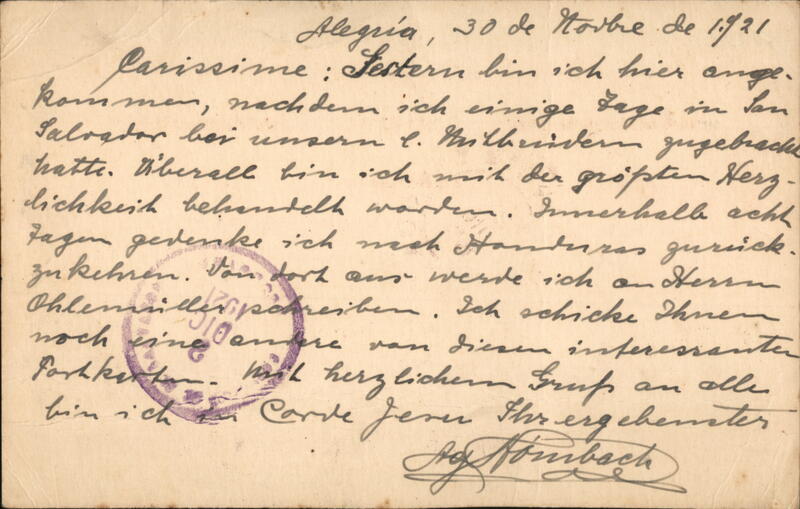 Alegría, 30 de Novbre de 1921
Carissime: Gestern bin ich hier ange-
kommen, nachdem ich einige Tage in San
Salvador bei unsern l. Mitbrüdern zugebracht
hatte. Überall bin ich mit der größten Herz-
lichkeit behandelt worden. Innerhalb acht
Tagen gedenke ich nach Honduras zurück-
zukehren. Von dort aus werde ich an Herrn
Ohlemüller schreiben. Ich schicke Ihnen
noch eine andere von diesen interessanten
Postkarten. Mit herzlichem Gruß an alle
bin ich in Corde Jesu Ihr ergebenster
Ag
2 DIC 1921